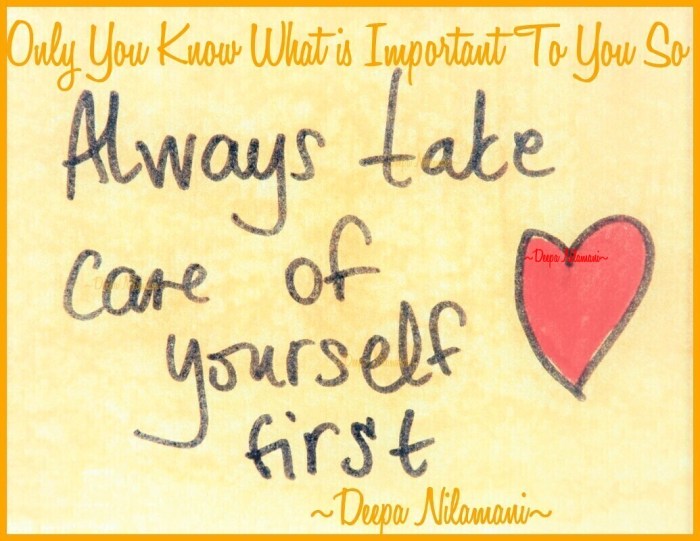 Only You Know What is Important To You So
Always take
care of
~Deepa Nilamani~
yourself
first
~Deepa Nilamani~